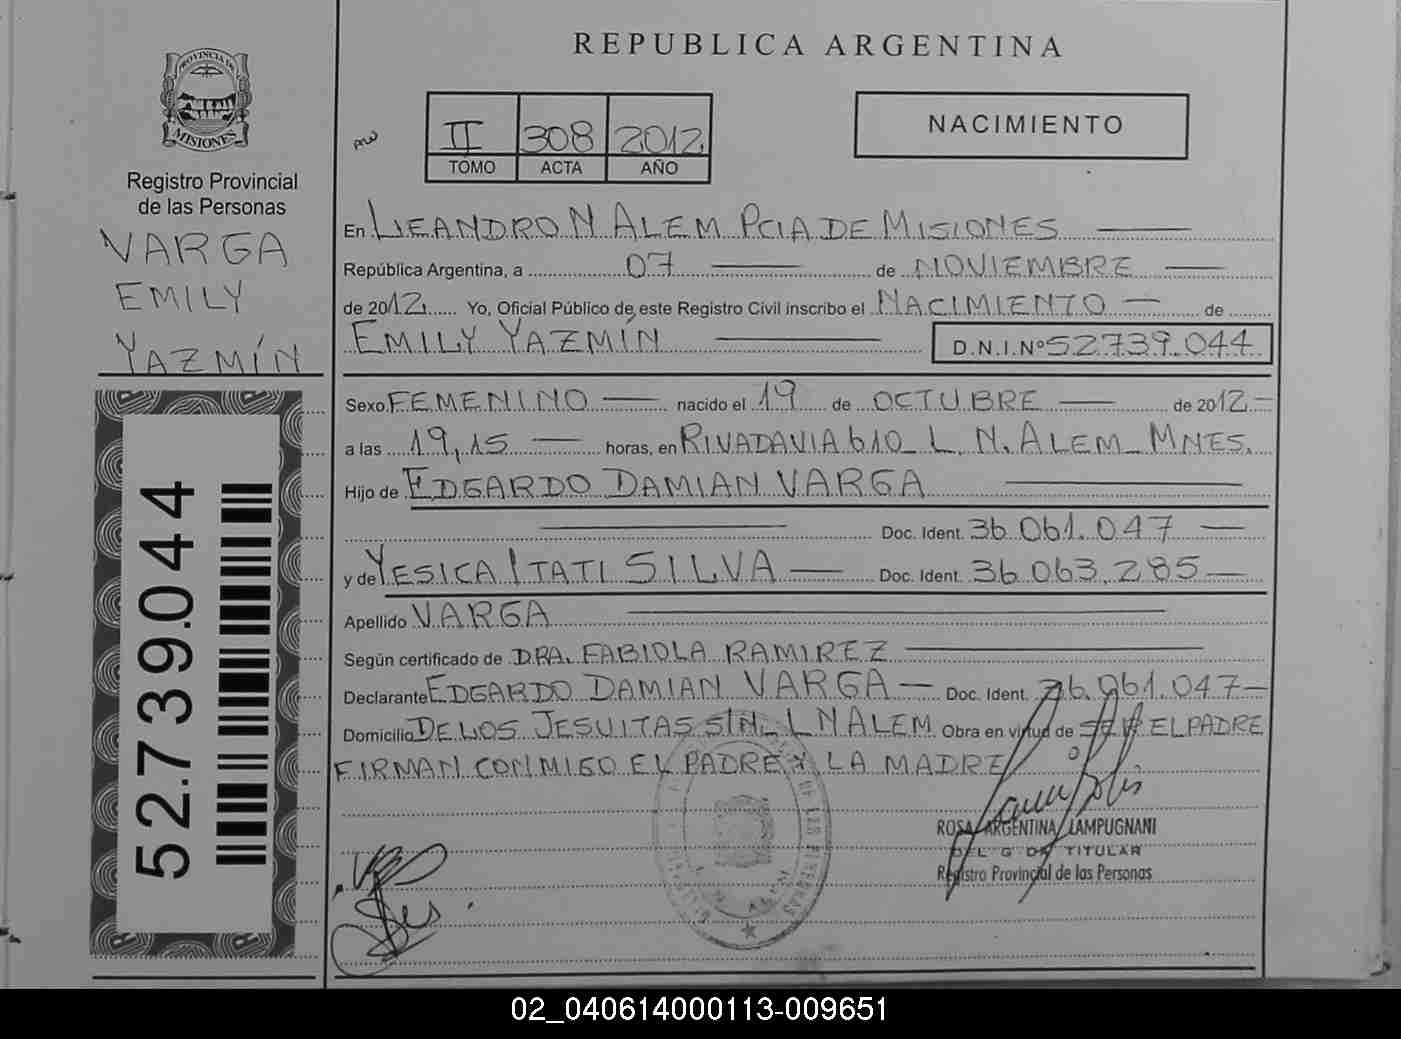 REPUBLICA ARGENTINA
PROVINCIA DE
MISIONES
Registro Provincial
de las Personas
VARGA
EMILY
YAZMÍN
52.739.044
II 308 2012
TOMO ACTA AÑO
NACIMIENTO
En LEANDRO N ALEM PCIA DE MISIONES
República Argentina, a 07 de NOVIEMBRE
de 2012. Yo, Oficial Público de este Registro Civil inscribo el NACIMIENTO de
EMILY YAZMÍN D.N.I.Nº 52.739.044
Sexo FEMENINO nacido el 19 de OCTUBRE de 2012
a las 19,15 horas, en RIVADAVIA 610 L. N. ALEM MNES.
Hijo de EDGARDO DAMIAN VARGA
Doc. Ident. 36.061.047
y de YESICA ITATI SILVA Doc. Ident. 36.063.285
Apellido VARGA
Según certificado de DRA. FABIOLA RAMIREZ
Declarante EDGARDO DAMIAN VARGA Doc. Ident. 36.061.047
Domicilio DE LOS JESUITAS S/N L N ALEM Obra en virtud de SER EL PADRE
FIRMAN CONMIGO EL PADRE Y LA MADRE
ROSA ARGENTINA LAMPUGNANI
TITULAR
Registro Provincial de las Personas
02_040614000113-009651